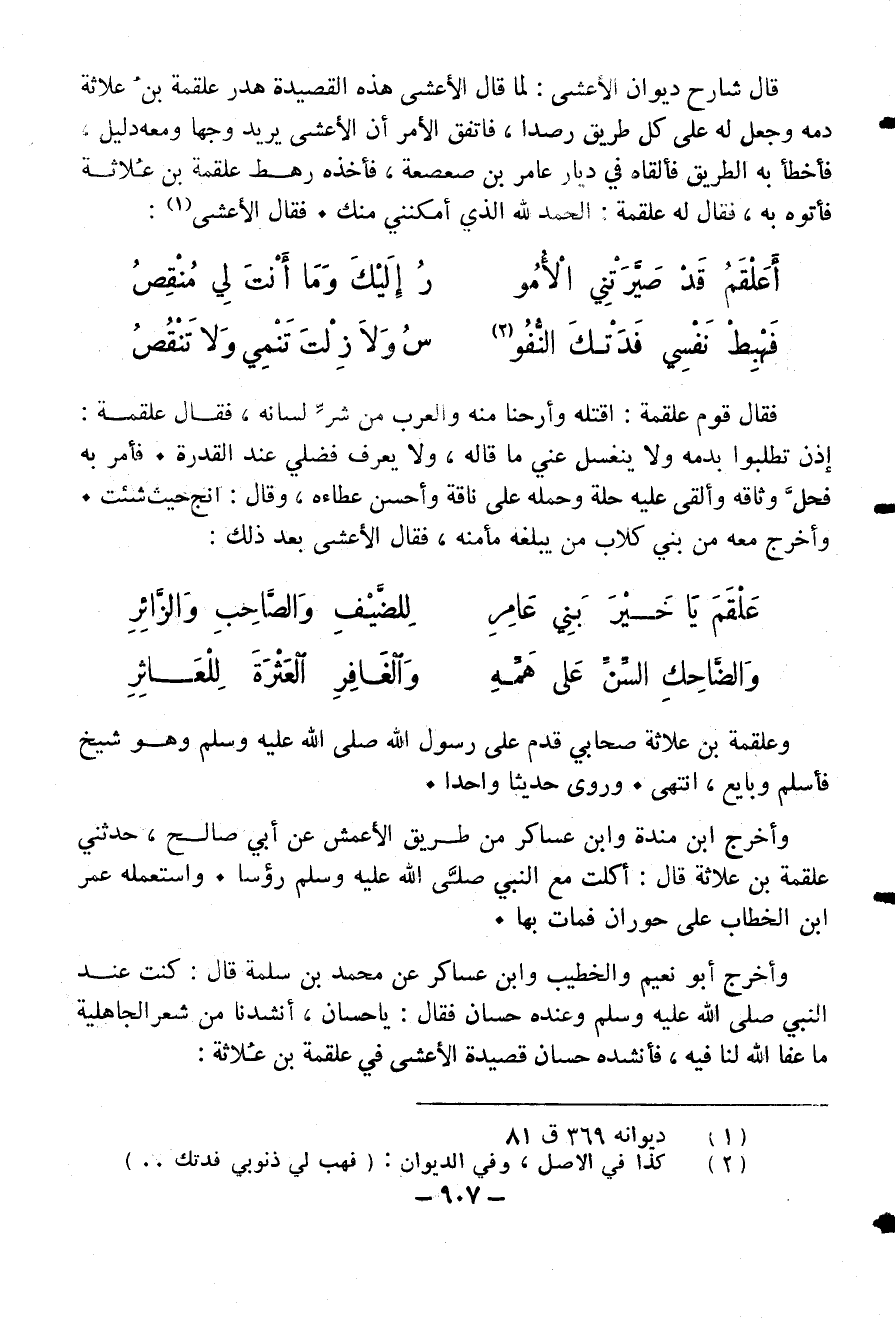 قال شارح ديوان الأعشى : لما قال الأعشى هذه القصيدة هدر علقمة بن علاثة
دمه وجعل له على كل طريق رصدا ، فاتفق الأمر أن الأعشى يريد وجها ومعه دليل ،
فأخطأ به الطريق فألقاه في ديار عامر بن صعصعة ، فأخذه رهط علقمة بن عُلاثة
فأتوه به ، فقال له علقمة : الحمد لله الذي أمكنني منك • فقال الأعشى(١) :
أَعَلْقَمُ قَدْ صَيَّرَتْنِي الْأُمُو رُ إِلَيْكَ وَمَا أَنْتَ لِي مُنْقِصُ
فَهِبْطْ نَفْسِي فَدَتْكَ النُّفُو(٢) سُ وَلاَ زِلْتَ تَنْمِي وَلاَ تَنْقُصُ
فقال قوم علقمة : اقتله وأرحنا منه والعرب من شرِّ لسانه ، فقال علقمة :
إذن تطلبوا بدمه ولا ينغسل عني ما قاله ، ولا يعرف فضلي عند القدرة • فأمر به
فحلَّ وثاقه وألقى عليه حلة وحمله على ناقة وأحسن عطاءه ، وقال : انج حيث شئت •
وأخرج معه من بني كلاب من يبلغه مأمنه ، فقال الأعشى بعد ذلك :
عَلْقَمَ يَا خَيْرَ بَنِي عَامِرِ لِلضَّيْفِ وَالصَّاحِبِ وَالزَّائِرِ
وَالضَّاحِكِ السِّنِّ عَلَى هَمِّهِ وَالْغَافِرِ الْعَثْرَةَ لِلْعَاثِرِ
وعلقمة بن علاثة صحابي قدم على رسول الله صلى الله عليه وسلم وهو شيخ
فأسلم وبايع ، انتهى • وروى حديثا واحدا •
وأخرج ابن مندة وابن عساكر من طريق الأعمش عن أبي صالح ، حدثني
علقمة بن علاثة قال : أكلت مع النبي صلَّى الله عليه وسلم رؤسا • واستعمله عمر
ابن الخطاب على حوران فمات بها •
وأخرج أبو نعيم والخطيب وابن عساكر عن محمد بن سلمة قال : كنت عند
النبي صلى الله عليه وسلم وعنده حسان فقال : ياحسان ، أنشدنا من شعر الجاهلية
ما عفا الله لنا فيه ، فأنشده حسان قصيدة الأعشى في علقمة بن عُلاثة :
(١) ديوانه ٣٦٩ ق ٨١
(٢) كذا في الاصل ، وفي الديوان : ( فهب لي ذنوبي فدتك . . )
– ٩٠٧ –